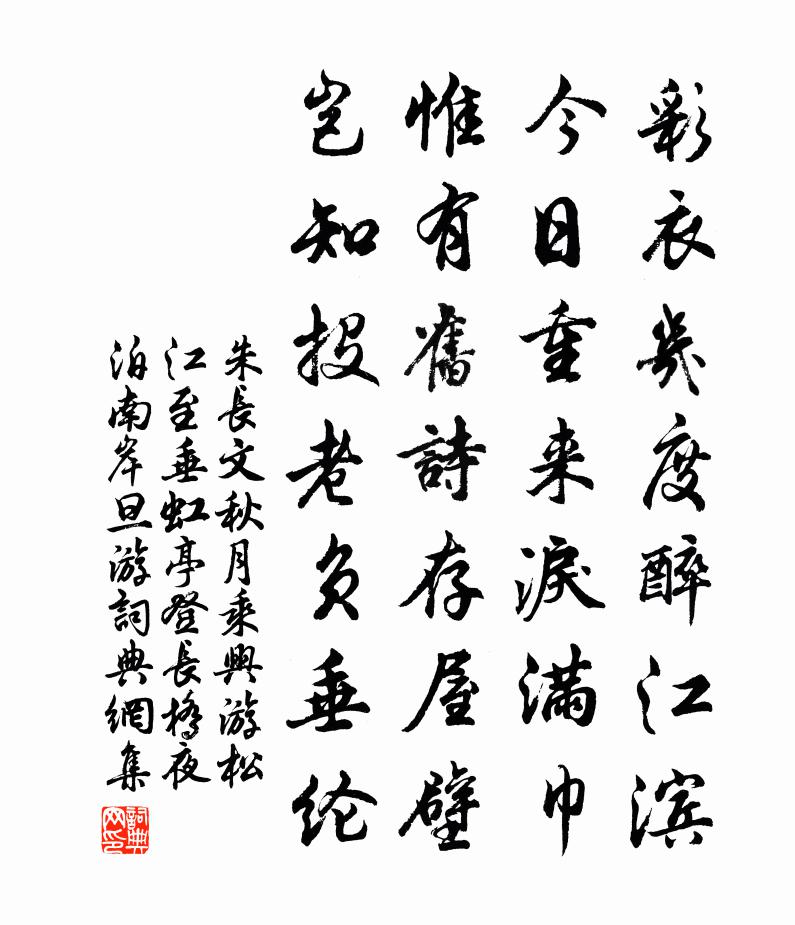 彩衣幾度醉江滨
今日重来淚滿巾
惟有舊詩存屋壁
岂知投老负垂纶
朱長文秋月乘興游松
江至垂虹亭登長橋夜
泊南岸旦游詞典網集
詞典网印